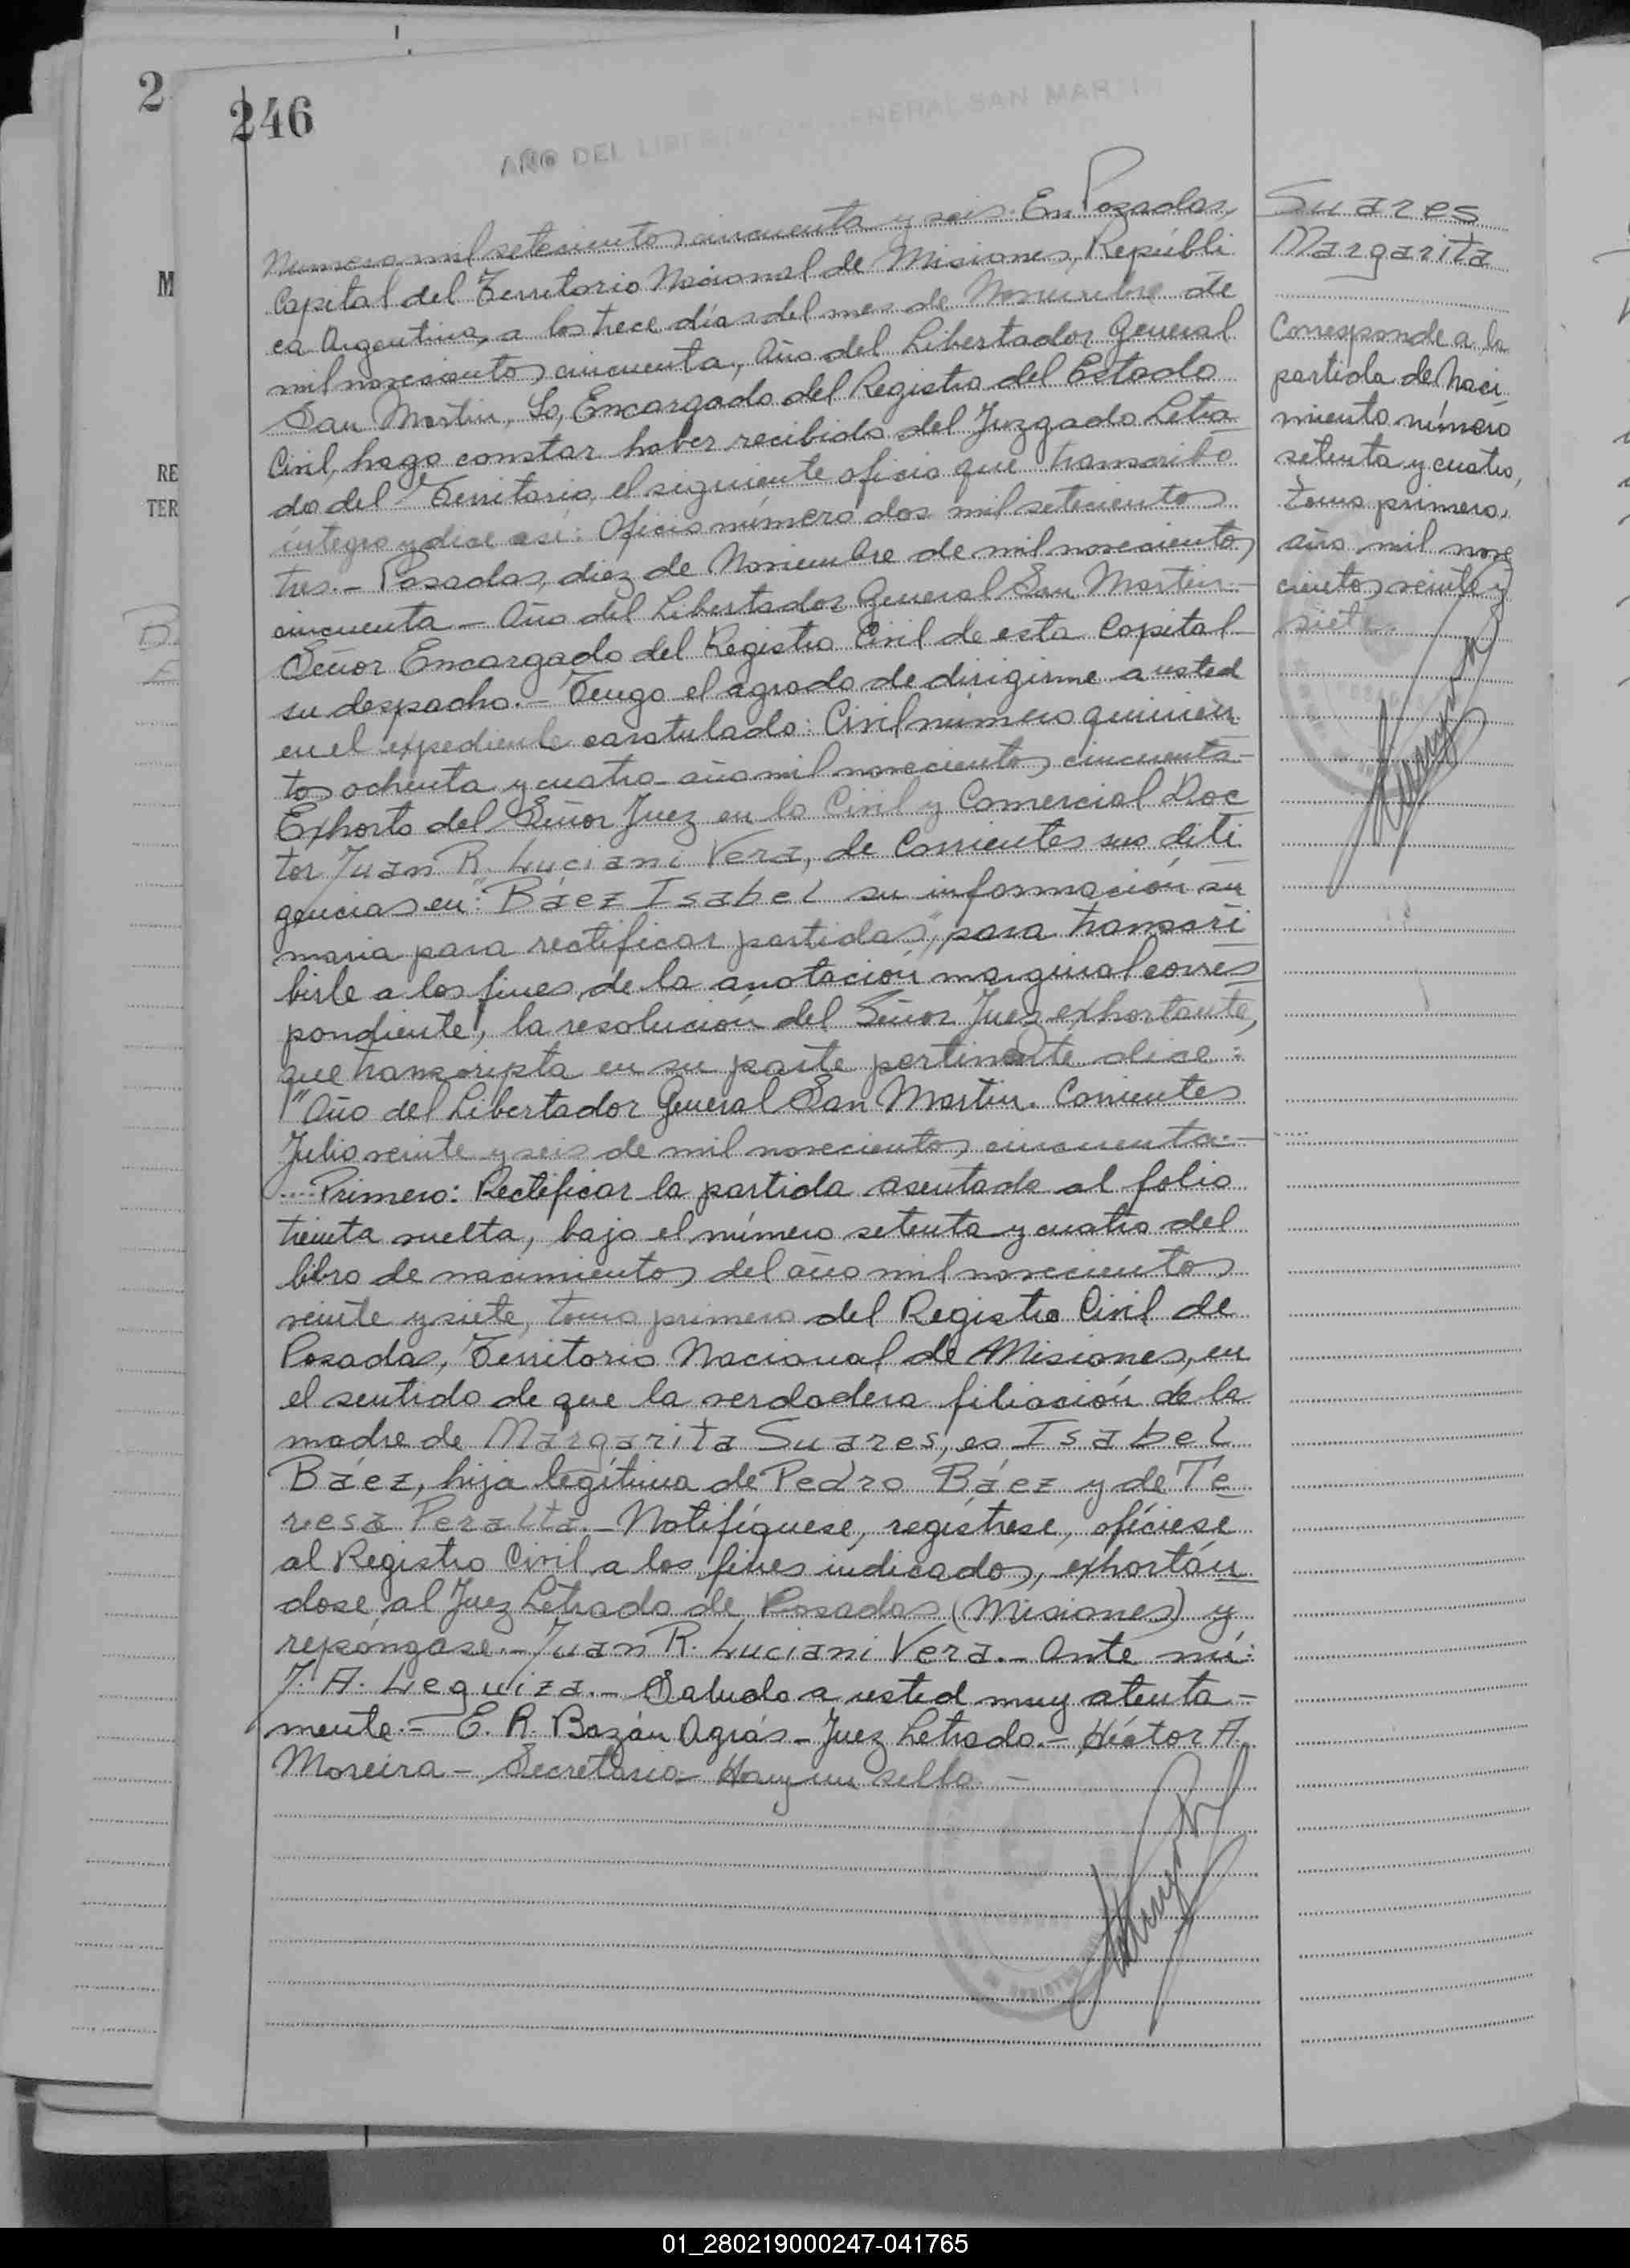 2
246
AÑO DEL LIBERTADOR GENERAL SAN MARTIN
Numero mil setecientos cincuenta y seis. En Posadas,
Capital del Territorio Nacional de Misiones, Repúbli
ca Argentina, a los trece días del mes de Noviembre de
mil novecientos cincuenta, Año del Libertador General
San Martin, Yo, Encargado del Registro del Estado
Civil, hago constar haber recibido del Juzgado Letra
do del Territorio, el siguiente oficio que transcribo
integro y dice así: Oficio número dos mil setecientos
tres.- Posadas, diez de Noviembre de mil novecientos
cincuenta - Año del Libertador General San Martin.-
Señor Encargado del Registro Civil de esta Capital
su despacho.- Tengo el agrado de dirigirme a usted
en el expediente caratulado: Civil número quinien
tos ochenta y cuatro - año mil novecientos cincuenta -
Exhorto del Señor Juez en lo Civil y Comercial Doc
tor Juan R. Luciani Vera, de Corrientes sus dili
gencias en: "Báez Isabel su información su
maria para rectificar partidas", para transcri
birle a los fines de la anotación marginal corres
pondiente, la resolución del Señor Juez exhortante,
que transcripta en su parte pertinente dice:
"Año del Libertador General San Martin. Corrientes
Julio veinte y seis de mil novecientos cincuenta.-
.... Primero: Rectificar la partida asentada al folio
treinta vuelta, bajo el número setenta y cuatro del
libro de nacimientos del año mil novecientos
veinte y siete, tomo primero del Registro Civil de
Posadas, Territorio Nacional de Misiones, en
el sentido de que la verdadera filiación de la
madre de Margarita Suares, es Isabel
Báez, hija legítima de Pedro Báez y de Te
resa Peralta.- Notifíquese, regístrese, ofíciese
al Registro Civil a los fines indicados, exhortán
dose al Juez Letrado de Posadas (Misiones) y
repóngase.- Juan R. Luciani Vera.- Ante mi:
J. A. Leguiza.- Saludo a usted muy atenta-
mente.- E. R. Bazán Agrás - Juez Letrado.- Héctor A.
Moreira - Secretario - Hay un sello.-
Suares
Margarita
Corresponde a la
partida de naci
miento número
setenta y cuatro,
tomo primero,
año mil nove
cientos veinte y
siete.
M
RE
TER
01_280219000247-041765